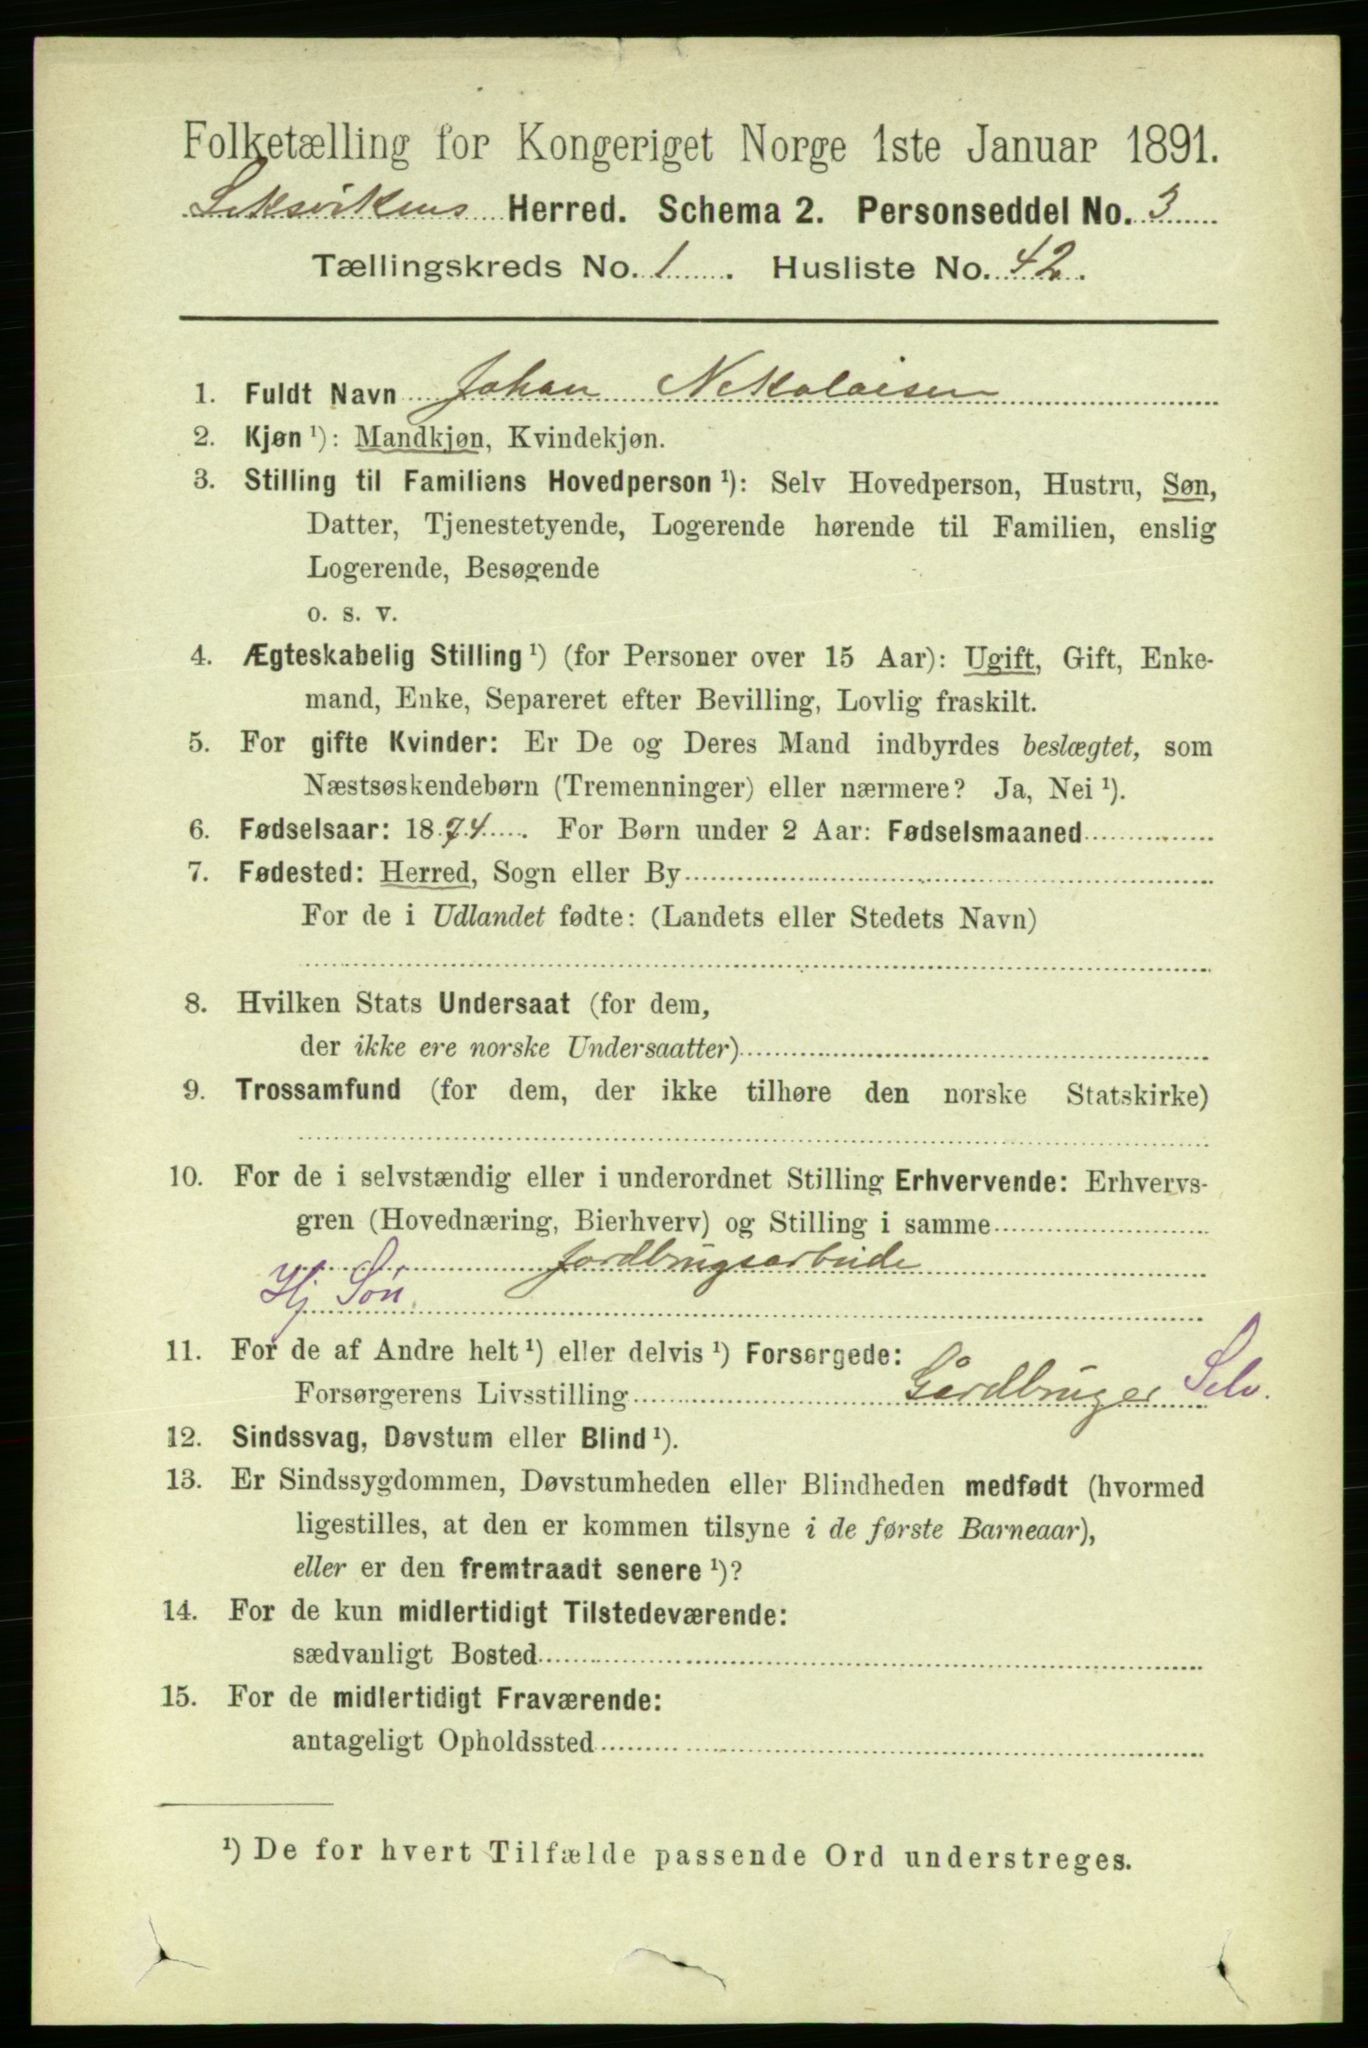 Folketælling for Kongeriget Norge 1ste Januar 1891.
Leksvikens Herred. Schema 2. Personseddel No. 3
Tællingskreds No. 1. Husliste No. 42.
1. Fuldt Navn Johan Nikolaisen
2. Kjøn ¹): Mandkjøn, Kvindekjøn.
3. Stilling til Familiens Hovedperson ¹): Selv Hovedperson, Hustru, Søn,
Datter, Tjenestetyende, Logerende hørende til Familien, enslig
Logerende, Besøgende
o. s. v.
4. Ægteskabelig Stilling ¹) (for Personer over 15 Aar): Ugift, Gift, Enke-
mand, Enke, Separeret efter Bevilling, Lovlig fraskilt.
5. For gifte Kvinder: Er De og Deres Mand indbyrdes beslægtet, som
Næstsøskendebørn (Tremenninger) eller nærmere? Ja, Nei ¹).
6. Fødselsaar: 1874. For Børn under 2 Aar: Fødselsmaaned
7. Fødested: Herred, Sogn eller By
For de i Udlandet fødte: (Landets eller Stedets Navn)
8. Hvilken Stats Undersaat (for dem,
der ikke ere norske Undersaatter)
9. Trossamfund (for dem, der ikke tilhøre den norske Statskirke)
10. For de i selvstændig eller i underordnet Stilling Erhvervende: Erhvervs-
gren (Hovednæring, Bierhverv) og Stilling i samme
Jordbrugsarbeide
Hj Søn
11. For de af Andre helt ¹) eller delvis ¹) Forsørgede:
Forsørgerens Livsstilling Gårdbruger Selv.
12. Sindssvag, Døvstum eller Blind ¹).
13. Er Sindssygdommen, Døvstumheden eller Blindheden medfødt (hvormed
ligestilles, at den er kommen tilsyne i de første Barneaar),
eller er den fremtraadt senere ¹)?
14. For de kun midlertidigt Tilstedeværende:
sædvanligt Bosted
15. For de midlertidigt Fraværende:
antageligt Opholdssted
¹) De for hvert Tilfælde passende Ord understreges.